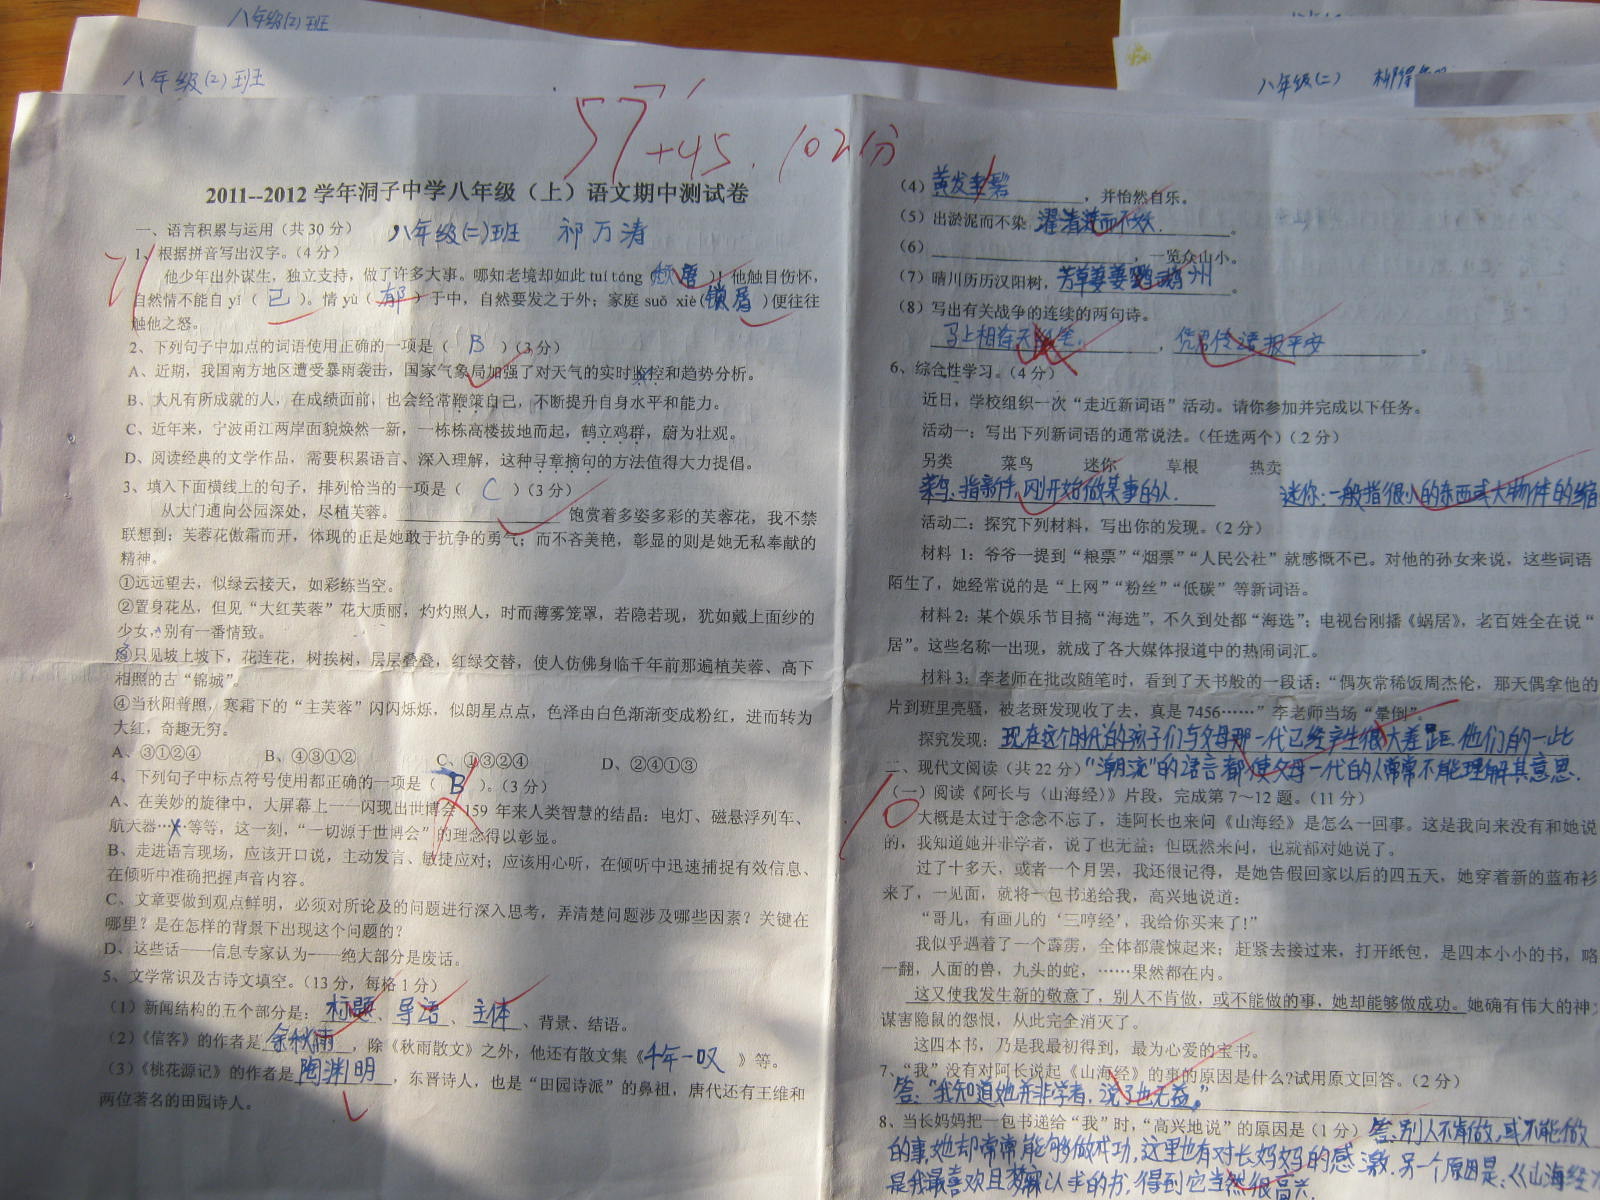 八年级(2)班
八年级(2)班
八年级(二)
57+45. 102分
2011--2012 学年洞子中学八年级（上）语文期中测试卷
一、语言积累与运用（共30 分）
八年级(二)班 祁万涛
21
1、根据拼音写出汉字。（4 分）
他少年出外谋生，独立支持，做了许多大事。哪知老境却如此 tuí táng（颓唐）！他触目伤怀，
自然情不能自 yǐ（ 已 ）。情 yù（ 郁 ）于中，自然要发之于外；家庭 suǒ xiè(锁屑 )便往往
触他之怒。
2、下列句子中加点的词语使用正确的一项是（ B ）(3 分）
A、近期，我国南方地区遭受暴雨袭击，国家气象局加强了对天气的实时监控和趋势分析。
B、大凡有所成就的人，在成绩面前，也会经常鞭策自己，不断提升自身水平和能力。
C、近年来，宁波甬江两岸面貌焕然一新，一栋栋高楼拔地而起，鹤立鸡群，蔚为壮观。
D、阅读经典的文学作品，需要积累语言、深入理解，这种寻章摘句的方法值得大力提倡。
3、填入下面横线上的句子，排列恰当的一项是（ C ）(3 分）
从大门通向公园深处，尽植芙蓉。 饱赏着多姿多彩的芙蓉花，我不禁
联想到：芙蓉花傲霜而开，体现的正是她敢于抗争的勇气；而不吝美艳，彰显的则是她无私奉献的
精神。
①远远望去，似绿云接天，如彩练当空。
②置身花丛，但见“大红芙蓉”花大质丽，灼灼照人，时而薄雾笼罩，若隐若现，犹如戴上面纱的
少女，别有一番情致。
③只见坡上坡下，花连花，树挨树，层层叠叠，红绿交替，使人仿佛身临千年前那遍植芙蓉、高下
相照的古“锦城”。
④当秋阳普照，寒霜下的“主芙蓉”闪闪烁烁，似朗星点点，色泽由白色渐渐变成粉红，进而转为
大红，奇趣无穷。
A、③①②④ B、④③①② C、①③②④ D、②④①③
4、下列句子中标点符号使用都正确的一项是（ B ）。（3 分）
A、在美妙的旋律中，大屏幕上——闪现出世博会 159 年来人类智慧的结晶：电灯、磁悬浮列车、
航天器……等等，这一刻，“一切源于世博会”的理念得以彰显。
B、走进语言现场，应该开口说，主动发言、敏捷应对；应该用心听，在倾听中迅速捕捉有效信息、
在倾听中准确把握声音内容。
C、文章要做到观点鲜明，必须对所论及的问题进行深入思考，弄清楚问题涉及哪些因素？关键在
哪里？是在怎样的背景下出现这个问题的？
D、这些话——信息专家认为——绝大部分是废话。
5、文学常识及古诗文填空。（13 分，每格 1 分）
（1）新闻结构的五个部分是： 标题 、导语 、 主体 、背景、结语。
（2）《信客》的作者是 余秋雨 ，除《秋雨散文》之外，他还有散文集《千年一叹 》等。
（3）《桃花源记》的作者是陶渊明 ，东晋诗人，也是“田园诗派”的鼻祖，唐代还有王维和
两位著名的田园诗人。
（4）黄发垂髫 ，并怡然自乐。
（5）出淤泥而不染，濯清涟而不妖 。
（6） ，一览众山小。
（7）晴川历历汉阳树，芳草萋萋鹦鹉州 。
（8）写出有关战争的连续的两句诗。
马上相逢无纸笔 ，凭君传语报平安 。
6、综合性学习。（4 分）
近日，学校组织一次“走近新词语”活动。请你参加并完成以下任务。
活动一：写出下列新词语的通常说法。（任选两个）（2 分）
另类 菜鸟 迷你 草根 热卖
菜鸟：指新件，刚开始做某事的人. 迷你：一般指很小的东西或大物件的缩
活动二：探究下列材料，写出你的发现。（2 分）
材料 1：爷爷一提到“粮票”“烟票”“人民公社”就感慨不已。对他的孙女来说，这些词语
陌生了，她经常说的是“上网”“粉丝”“低碳”等新词语。
材料 2：某个娱乐节目搞“海选”，不久到处都“海选”；电视台刚播《蜗居》，老百姓全在说“
居”。这些名称一出现，就成了各大媒体报道中的热闹词汇。
材料 3：李老师在批改随笔时，看到了天书般的一段话：“偶灰常稀饭周杰伦，那天偶拿他的
片到班里亮骚，被老斑发现收了去，真是 7456……”李老师当场“晕倒”。
探究发现：现在这个时代的孩子们与父母那一代已经产生很大差距.他们的一些
二、现代文阅读（共 22 分）“潮流”的语言都使父母一代的人常常不能理解其意思.
10
（一）阅读《阿长与〈山海经〉》片段，完成第 7～12 题。（11 分）
大概是太过于念念不忘了，连阿长也来问《山海经》是怎么一回事。这是我向来没有和她说
的，我知道她并非学者，说了也无益；但既然来问，也就都对她说了。
过了十多天，或者一个月罢，我还很记得，是她告假回家以后的四五天，她穿着新的蓝布衫
来了，一见面，就将一包书递给我，高兴地说道：
“哥儿，有画儿的‘三哼经’，我给你买来了!”
我似乎遇着了一个霹雳，全体都震悚起来；赶紧去接过来，打开纸包，是四本小小的书，略
一翻，人面的兽，九头的蛇，……果然都在内。
这又使我发生新的敬意了，别人不肯做，或不能做的事，她却能够做成功。她确有伟大的神
谋害隐鼠的怨恨，从此完全消灭了。
这四本书，乃是我最初得到，最为心爱的宝书。
7、“我”没有对阿长说起《山海经》的事的原因是什么?试用原文回答。（2 分）
答：“我知道她并非学者，说了也无益。”
8、当长妈妈把一包书递给“我”时，“高兴地说”的原因是（1 分） 答：别人不肯做，或不能做
的事，她却常常能够做成功，这里也有对长妈妈的感激.另一个原因是：《山海经》
是我最喜欢且梦寐以求的书，得到它当然很高兴.